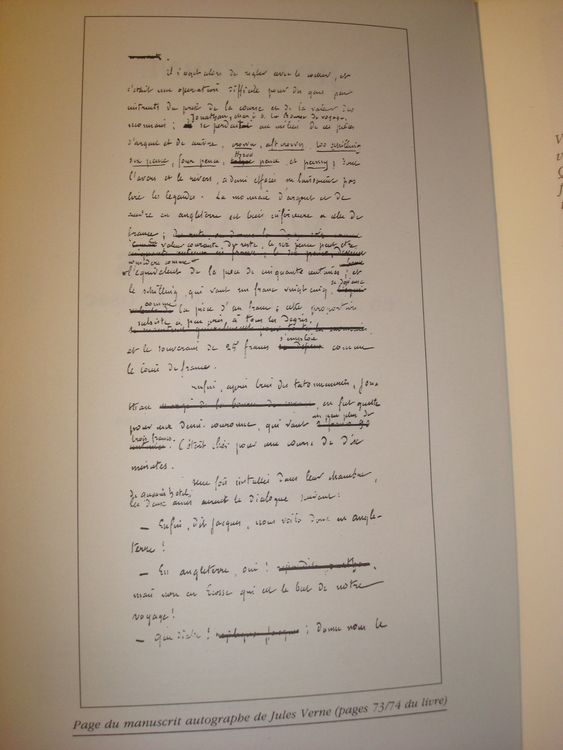 Il s'agit alors de régler avec le cocher, et
c'était une opération difficile pour des gens peu
instruits du prix de la course et de la valeur des
monnaies ; Jonathan, chargé de la bourse de voyage,
se perdait au milieu de ces pièces
d'argent et de cuivre, crown, half crown, schelling
six pence, four pence, three pence et penny ; dont
l'avers et le revers, à demi effacés ne laissaient pas
lire les légendes. La monnaie d'argent et de
cuivre en angleterre est bien inférieure à celle de
france ;
valeur courante, du reste, le six pence peut être
considéré comme
l'équivalent de la pièce de cinquante centimes, et
le schelling, qui vaut un franc vingt cinq
comme la pièce d'un franc ; cette proportion
subsiste à peu près à tous les degrés,
et le souverain de 25 francs s'emploie comme
le louis de france.
Enfin, après bien des tatonnements, Jona-
than en fut quitte
pour une demi-couronne, qui vaut un peu plus de
trois francs. C'était cher pour une course de dix
minutes.
Une fois installés dans leur chambre
du Queen's hotel,
les deux amis eurent le dialogue suivant :
— Enfin, dit Jacques, nous voilà donc en angle-
terre !
— En angleterre, oui !
mais non en Écosse qui est le but de notre
voyage !
— Que diable ! donne nous le
Page du manuscrit autographe de Jules Verne (pages 73/74 du livre)